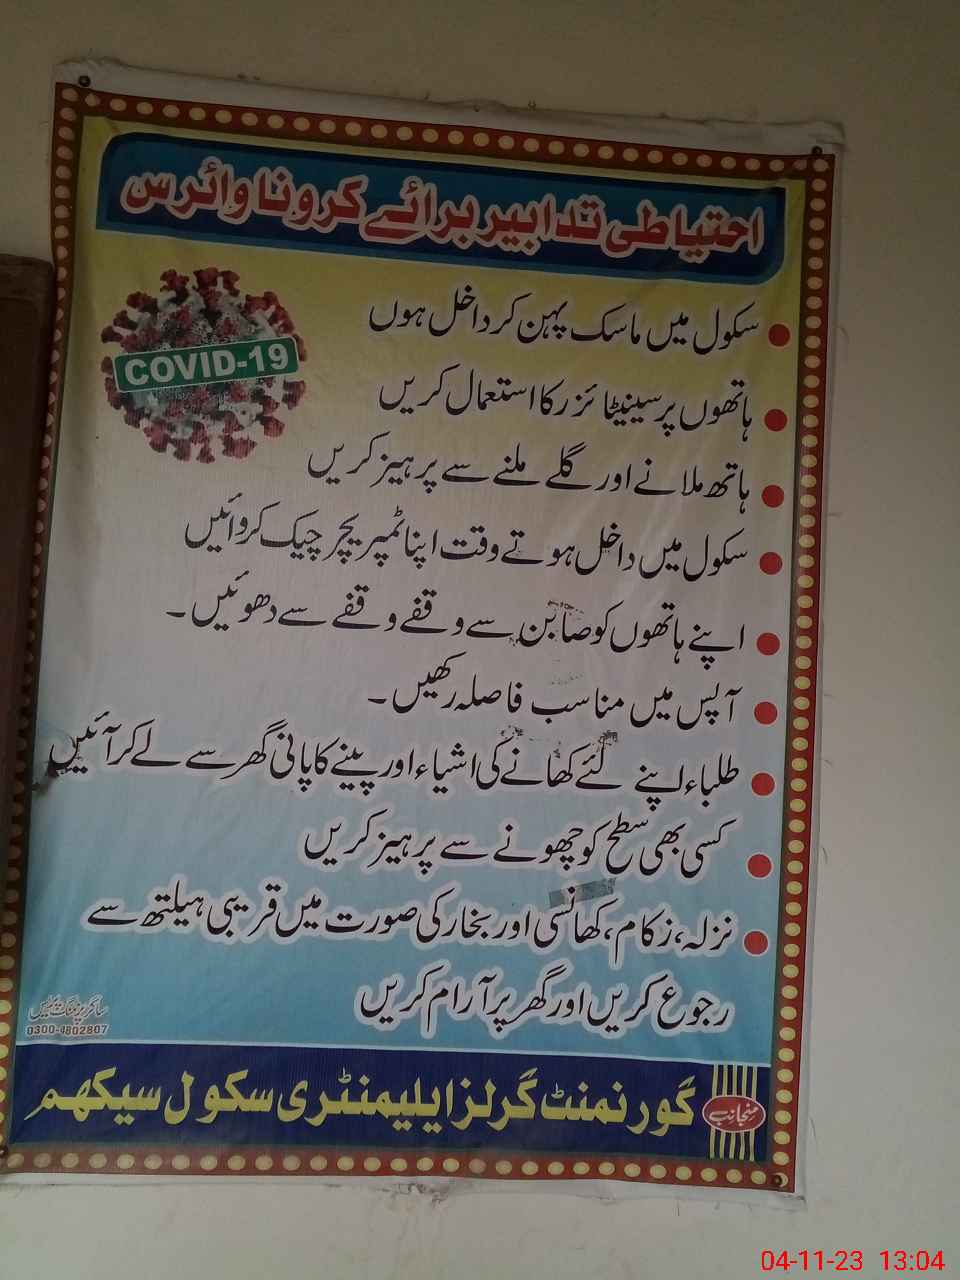 احتیاطی تدابیر برائے کرونا وائرس
COVID-19
سکول میں ماسک پہن کر داخل ہوں
ہاتھوں پر سینیٹائزر کا استعمال کریں
ہاتھ ملانے اور گلے ملنے سے پرہیز کریں
سکول میں داخل ہوتے وقت اپنا ٹمپریچر چیک کروائیں
اپنے ہاتھوں کو صابن سے وقفے وقفے سے دھوئیں۔
آپس میں مناسب فاصلہ رکھیں۔
طلباء اپنے لئے کھانے کی اشیاء اور پینے کا پانی گھر سے لے کر آئیں
کسی بھی سطح کو چھونے سے پرہیز کریں
نزلہ، زکام، کھانسی اور بخار کی صورت میں قریبی ہیلتھ سے
رجوع کریں اور گھر پر آرام کریں
ساگر پرنٹنگ پریس
0300-4802807
منجانب گورنمنٹ گرلز ایلیمنٹری سکول سیکھم
04-11-23 13:04